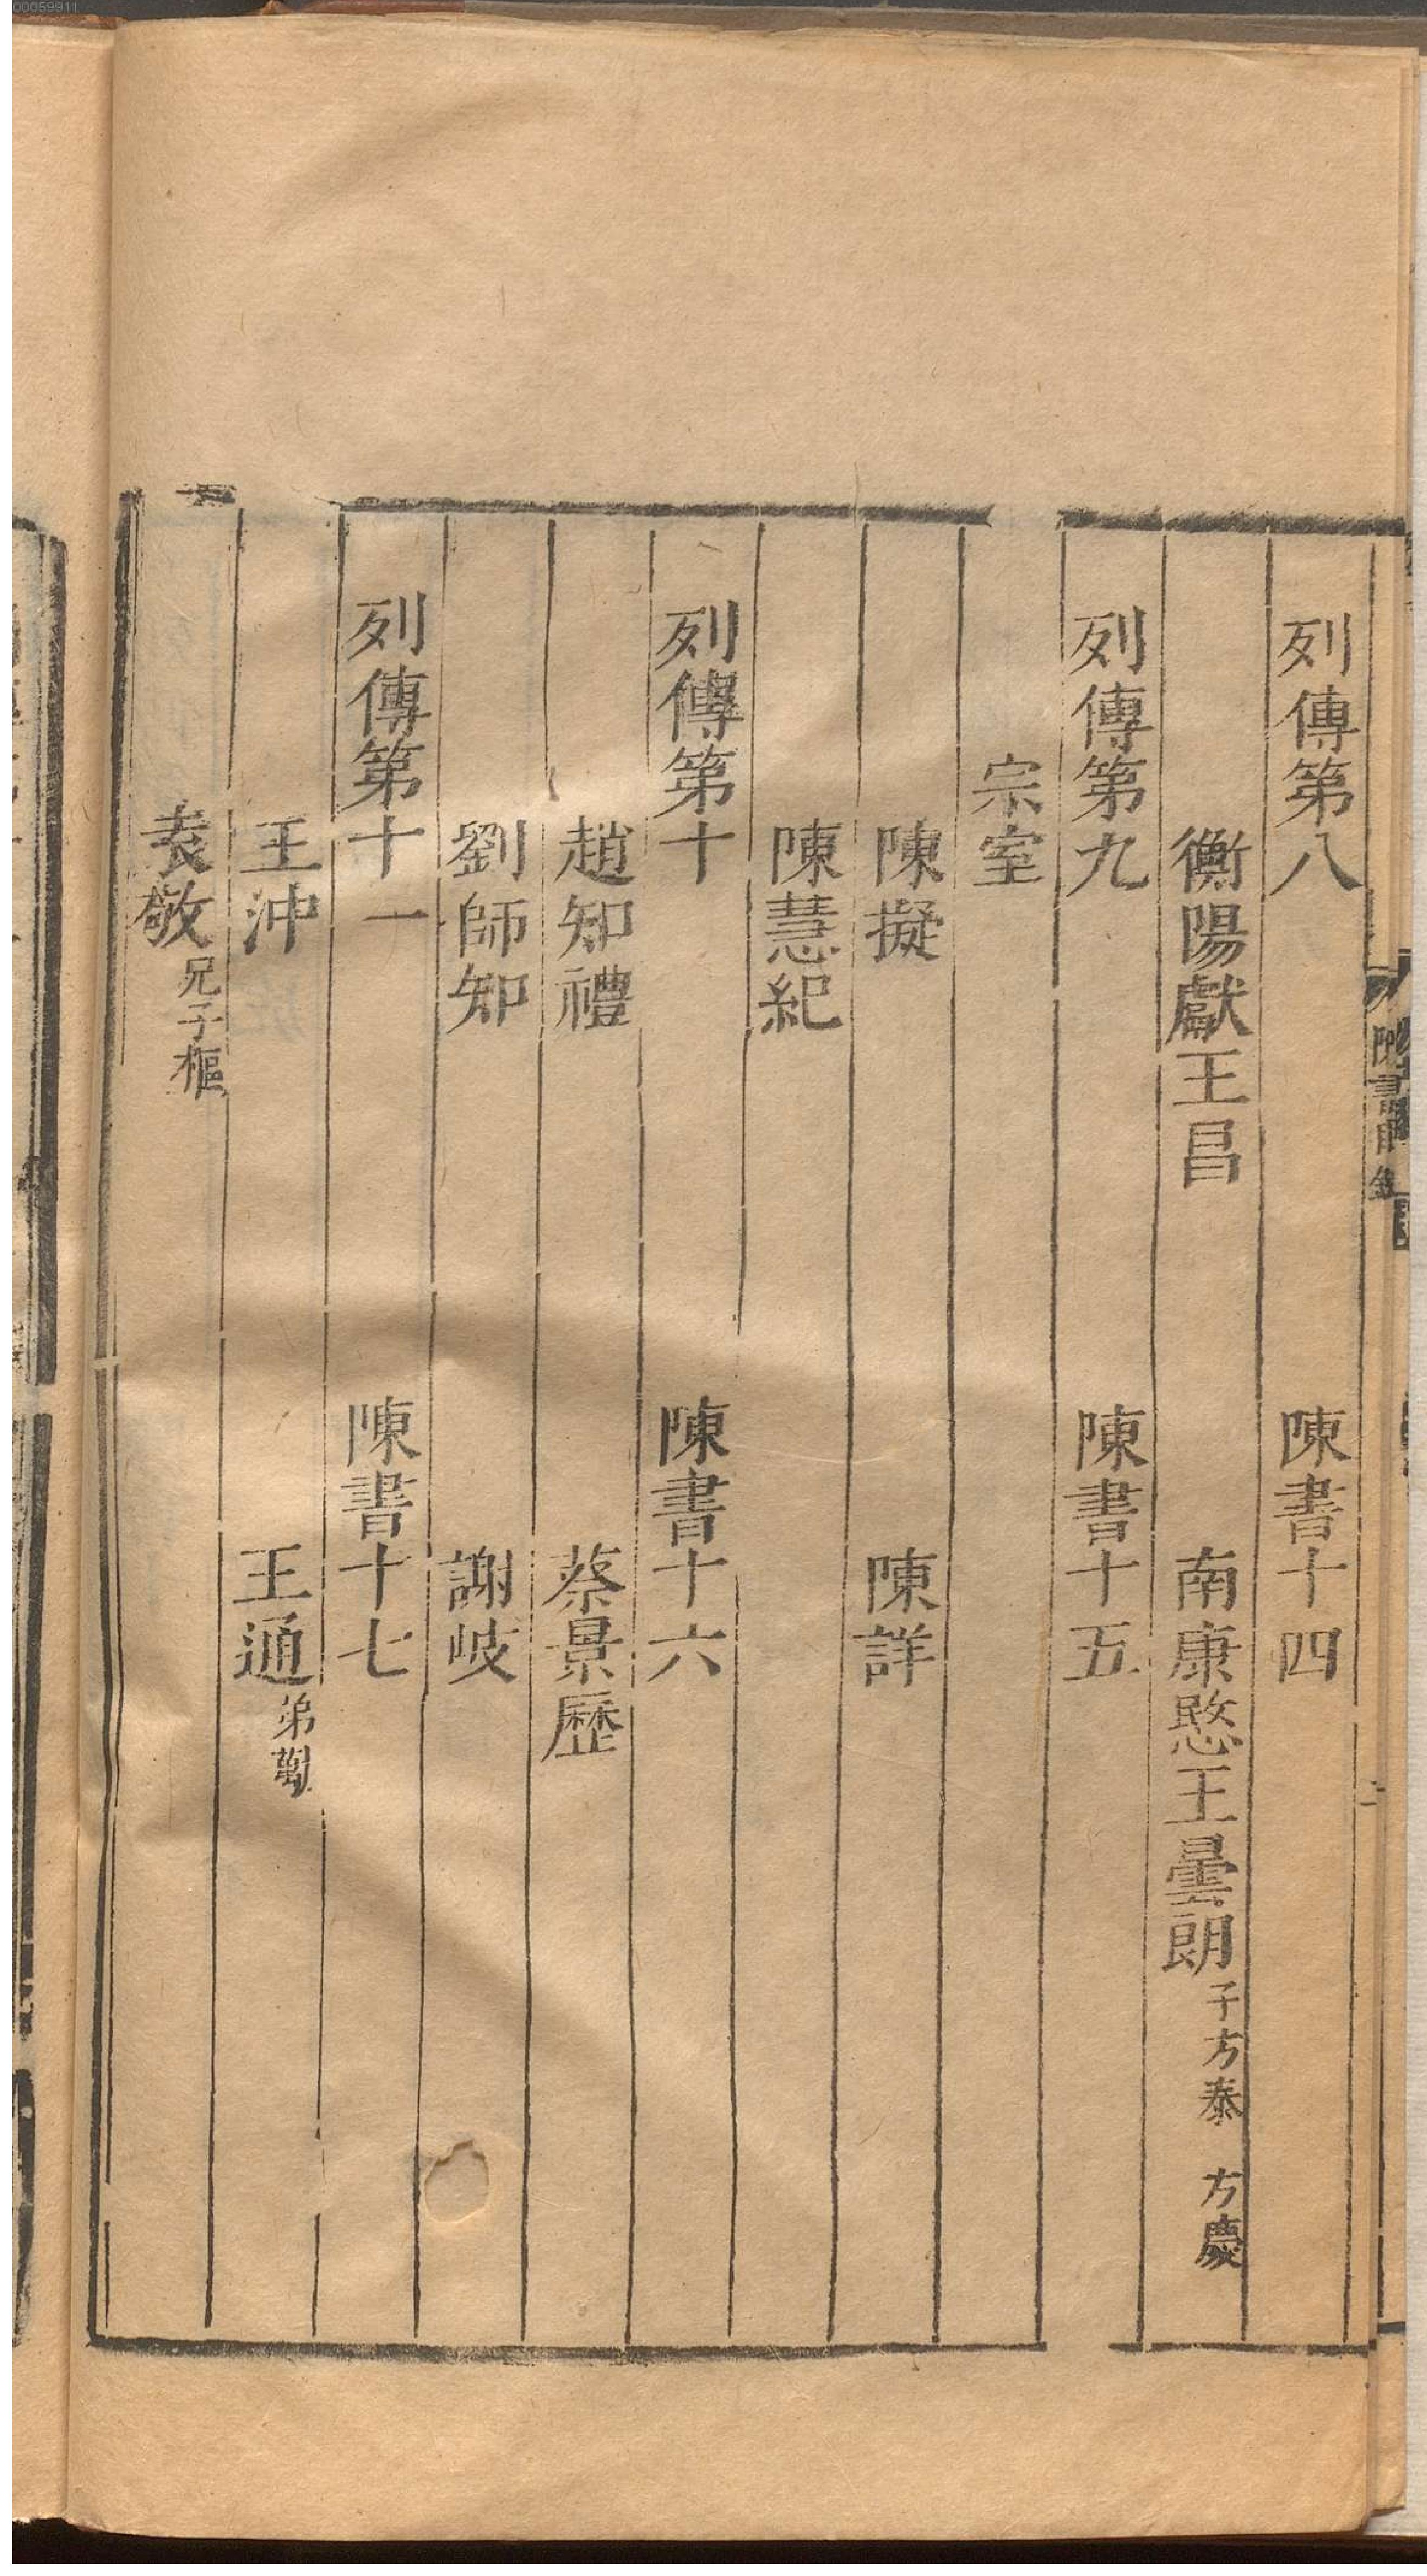 列傳第八　陳書十四
衡陽獻王昌　南康愍王曇朗子方泰　方慶
列傳第九　陳書十五
宗室
陳擬　陳詳
陳慧紀
列傳第十　陳書十六
趙知禮　蔡景歷
劉師知　謝岐
列傳第十一　陳書十七
王沖　王通弟勱
袁敬兄子樞
陳書目錄
二
00059911